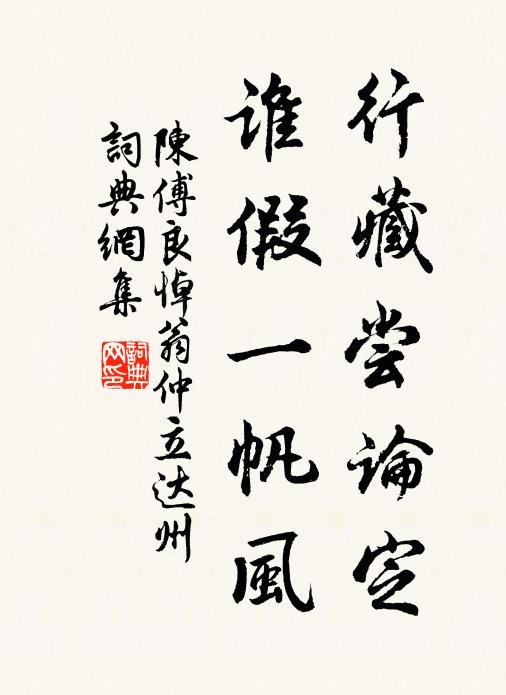 行藏尝論定
谁假一帆風
陳傅良悼翁仲立达州
詞典網集
詞典网印